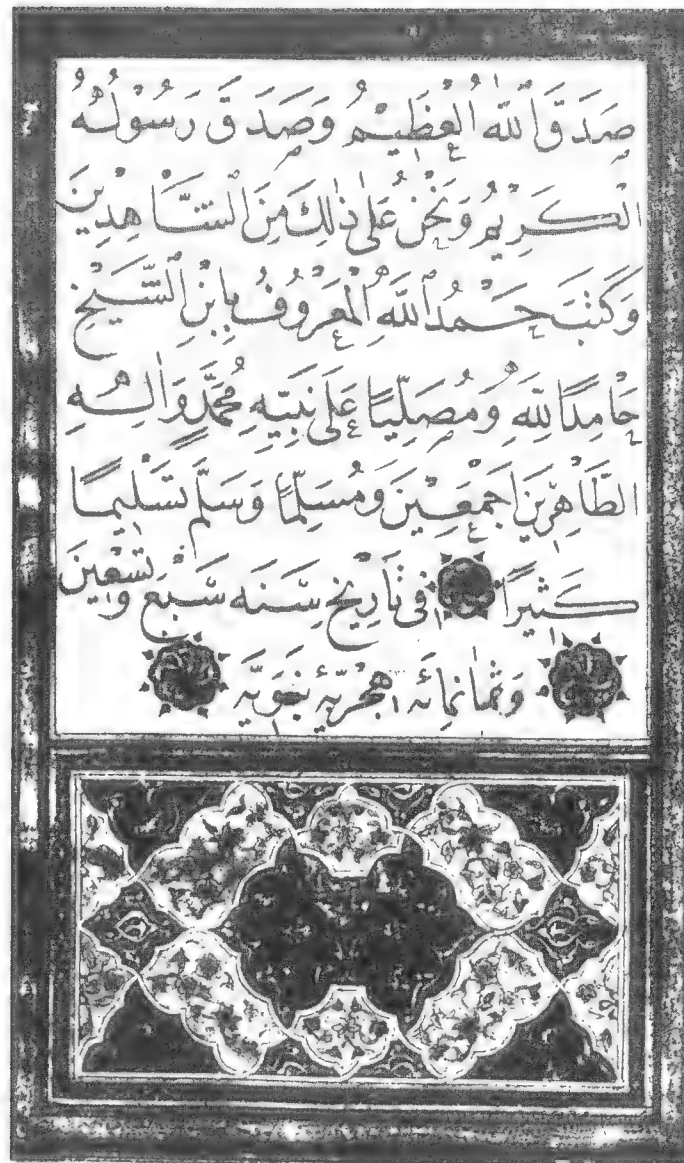 صَدَقَ اللهُ الْعَظِيمُ وَصَدَقَ رَسُولُهُ
الْكَرِيمُ وَنَحْنُ عَلَى ذٰلِكَ مِنَ الشَّاهِدِينَ
وَكَتَبَ حَمْدُ اللهِ الْمَعْرُوفُ بِابْنِ الشَّيْخِ
حَامِدًا لِلّٰهِ وَمُصَلِّيًا عَلَى نَبِيِّهِ مُحَمَّدٍ وَاٰلِهِ
الطَّاهِرِينَ اَجْمَعِينَ وَمُسَلِّمًا وَسَلَّمَ تَسْلِيمًا
كَثِيرًا فى تَارِيخِ سِنَه سَبْعٍ وَتِسْعِينَ
وَثَمَانمِائَه هِجْرِيَّه نَبَوِيَّه